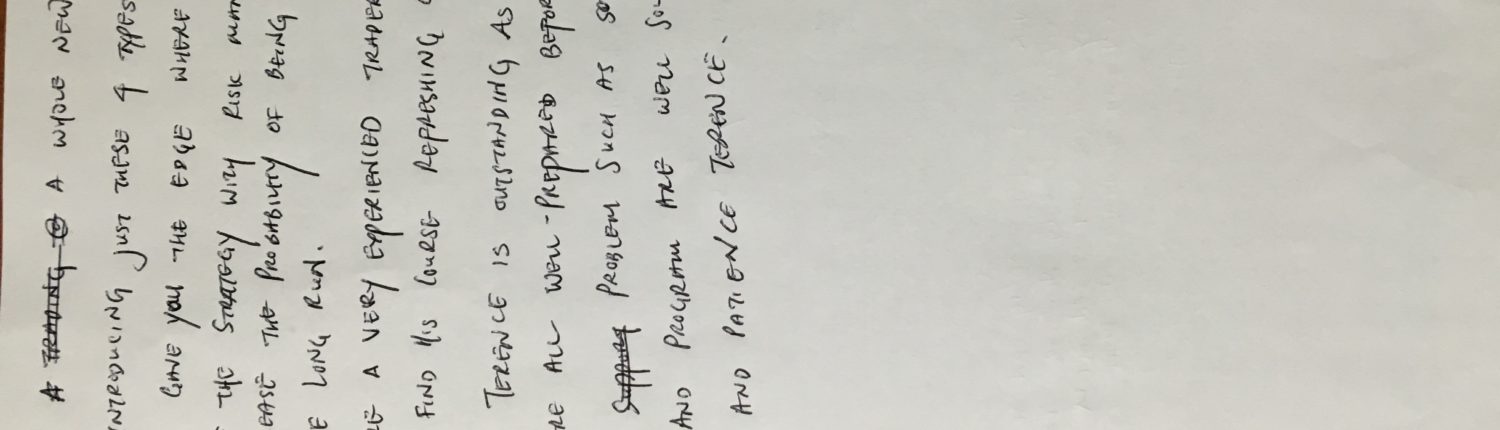 A TRADING A WHOLE NEW
INTRODUCING JUST THESE 4 TYPES
GAVE YOU THE EDGE WHERE
THE STRATEGY WITH RISK
EASE THE PROBABILITY OF BEING
E LONG RUN.
RE A VERY EXPERIENCED TRADER
FIND HIS COURSE REFRESHING
TERENCE IS OUTSTANDING AS
RE ALL WELL-PREPARED BEFOR
Support PROBLEM SUCH AS SO
AND PROGRAM ARE WELL SOL
AND PATIENCE TERENCE.